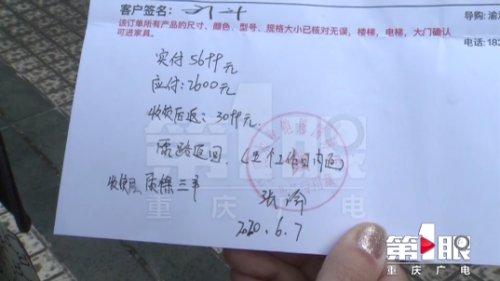 客户签名:
导购:渝
该订单所有产品的尺寸、颜色、型号、规格大小已核对无误,楼梯,电梯,大门确认
可进家具。
电话:182
实付5699元
应付:2600元
收货后返:3099元.
原路返回.(五个工作日内返)
收货后 质保三年
张
2020.6.7
第1眼
重庆广电
第1眼
重庆广电